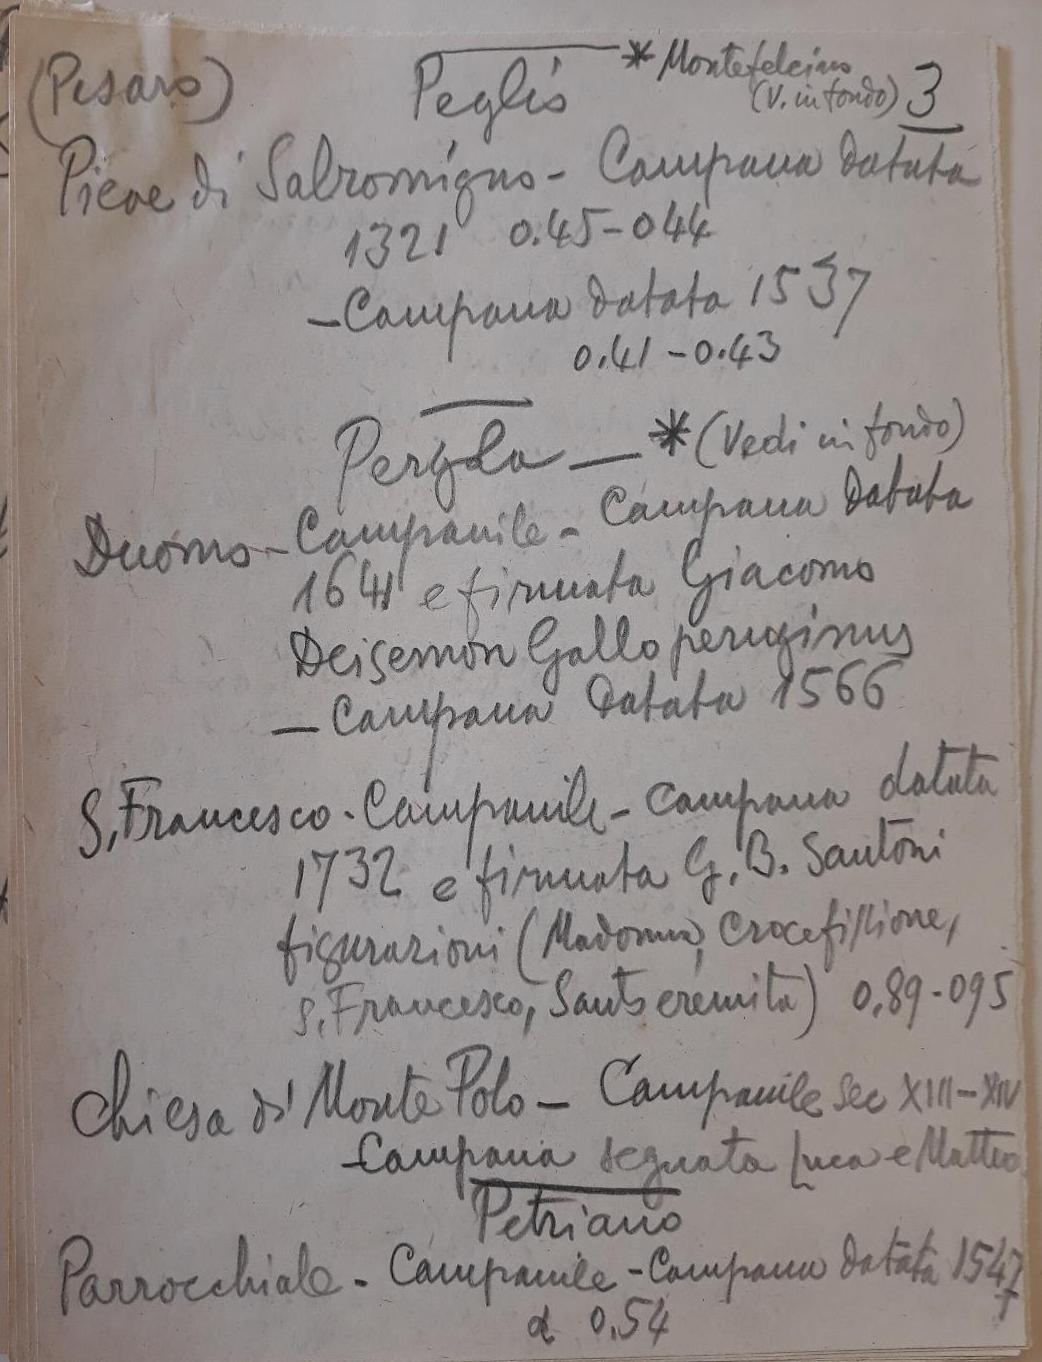 (Pesaro) Peglio * Montefelcino
(V. in fondo) 3
Pieve di Salromigno - Campana datata
1321 0.45-044
- Campana datata 1537
0.41-0.43
Pergola - * (Vedi in fondo)
Duomo - Campanile - Campana datata
1641 e firmata Giacomo
Deisemon Gallo peruginus
- Campana datata 1566
S. Francesco - Campanile - campana datata
1732 e firmata G. B. Santoni
figurazioni (Madonna, Crocefissione,
S. Francesco, Santo eremita) 0,89-095
Chiesa di Monte Polo - Campanile sec XIII-XIV
- Campana segnata Luca e Matteo
Petriano
Parrocchiale - Campanile - Campana datata 1547
d 0,54